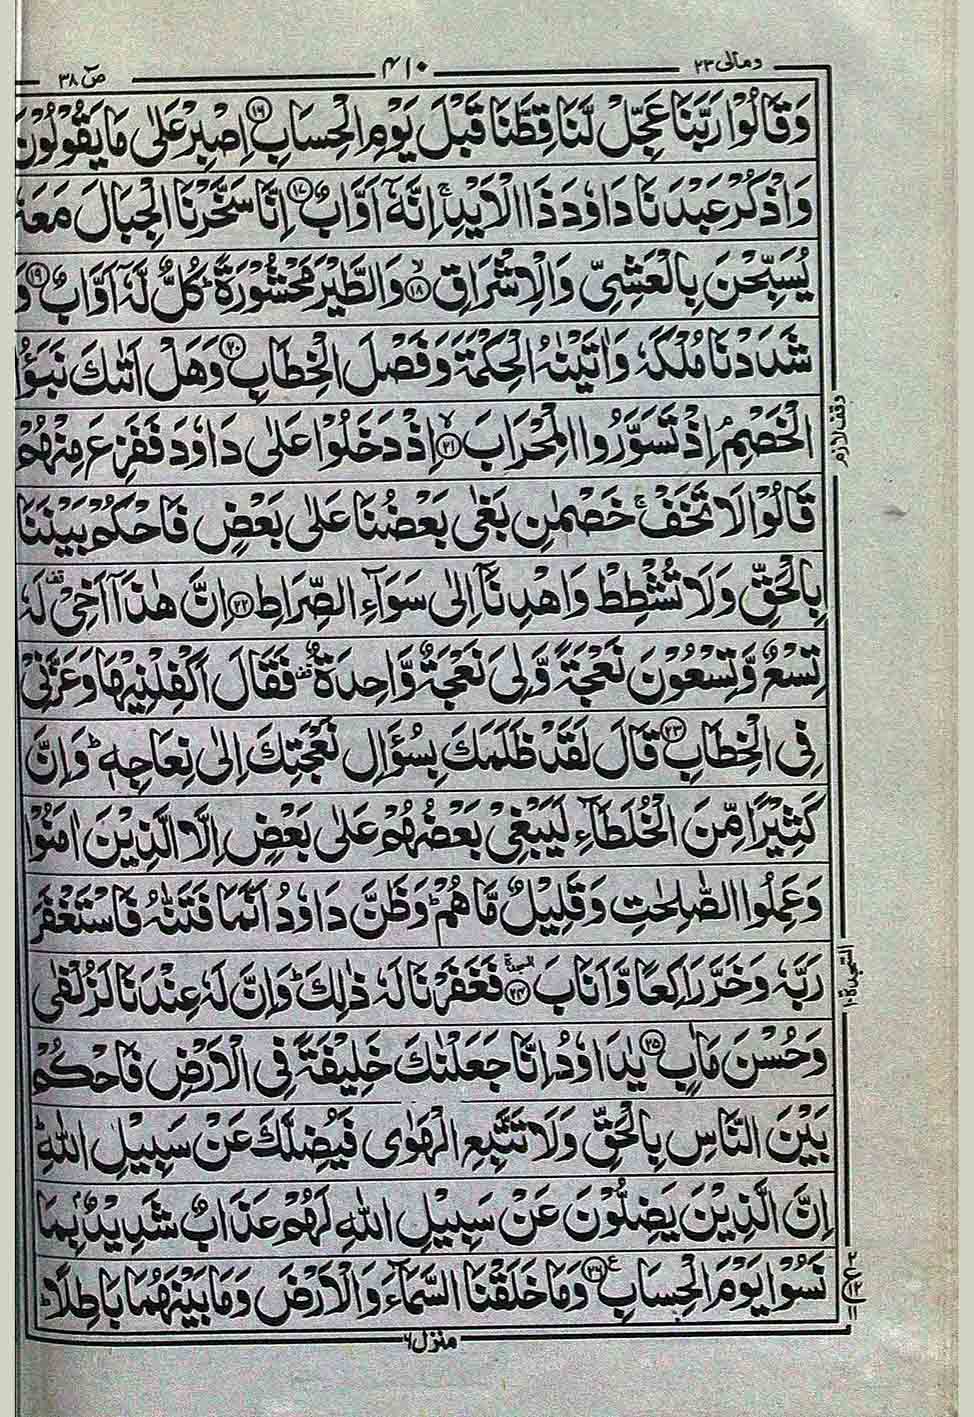 ومالی ۲۳ ۴۱۰ صٓ ۳۸
وَقَالُوۡا رَبَّنَا عَجِّلۡ لَّنَا قِطَّنَا قَبۡلَ یَوۡمِ الۡحِسَابِ ﴿۱۶﴾ اِصۡبِرۡ عَلٰی مَا یَقُوۡلُوۡنَ
وَاذۡکُرۡ عَبۡدَنَا دَاوٗدَ ذَا الۡاَیۡدِ ۚ اِنَّہٗۤ اَوَّابٌ ﴿۱۷﴾ اِنَّا سَخَّرۡنَا الۡجِبَالَ مَعَہٗ
یُسَبِّحۡنَ بِالۡعَشِیِّ وَالۡاِشۡرَاقِ ﴿ۙ۱۸﴾ وَالطَّیۡرَ مَحۡشُوۡرَۃً ؕ کُلٌّ لَّہٗۤ اَوَّابٌ ﴿۱۹﴾ وَ
شَدَدۡنَا مُلۡکَہٗ وَاٰتَیۡنٰہُ الۡحِکۡمَۃَ وَفَصۡلَ الۡخِطَابِ ﴿۲۰﴾ وَہَلۡ اَتٰىکَ نَبَؤُا
الۡخَصۡمِ ۘ اِذۡ تَسَوَّرُوا الۡمِحۡرَابَ ﴿ۙ۲۱﴾ اِذۡ دَخَلُوۡا عَلٰی دَاوٗدَ فَفَزِعَ مِنۡہُمۡ
قَالُوۡا لَا تَخَفۡ ۚ خَصۡمٰنِ بَغٰی بَعۡضُنَا عَلٰی بَعۡضٍ فَاحۡکُمۡ بَیۡنَنَا
بِالۡحَقِّ وَلَا تُشۡطِطۡ وَاہۡدِنَاۤ اِلٰی سَوَآءِ الصِّرَاطِ ﴿۲۲﴾ اِنَّ ہٰذَاۤ اَخِیۡ ۟ لَہٗ
تِسۡعٌ وَّتِسۡعُوۡنَ نَعۡجَۃً وَّلِیَ نَعۡجَۃٌ وَّاحِدَۃٌ ۟ فَقَالَ اَکۡفِلۡنِیۡہَا وَعَزَّنِیۡ
فِی الۡخِطَابِ ﴿۲۳﴾ قَالَ لَقَدۡ ظَلَمَکَ بِسُؤَالِ نَعۡجَتِکَ اِلٰی نِعَاجِہٖ ؕ وَاِنَّ
کَثِیۡرًا مِّنَ الۡخُلَطَآءِ لَیَبۡغِیۡ بَعۡضُہُمۡ عَلٰی بَعۡضٍ اِلَّا الَّذِیۡنَ اٰمَنُوۡا
وَعَمِلُوا الصّٰلِحٰتِ وَقَلِیۡلٌ مَّا ہُمۡ ؕ وَظَنَّ دَاوٗدُ اَنَّمَا فَتَنّٰہُ فَاسۡتَغۡفَرَ
رَبَّہٗ وَخَرَّ رَاکِعًا وَّاَنَابَ ﴿۲۴﴾ السجدۃ فَغَفَرۡنَا لَہٗ ذٰلِکَ ؕ وَاِنَّ لَہٗ عِنۡدَنَا لَزُلۡفٰی
وَحُسۡنَ مَاٰبٍ ﴿۲۵﴾ یٰدَاوٗدُ اِنَّا جَعَلۡنٰکَ خَلِیۡفَۃً فِی الۡاَرۡضِ فَاحۡکُمۡ
بَیۡنَ النَّاسِ بِالۡحَقِّ وَلَا تَتَّبِعِ الۡہَوٰی فَیُضِلَّکَ عَنۡ سَبِیۡلِ اللّٰہِ ؕ
اِنَّ الَّذِیۡنَ یَضِلُّوۡنَ عَنۡ سَبِیۡلِ اللّٰہِ لَہُمۡ عَذَابٌ شَدِیۡدٌۢ بِمَا
نَسُوۡا یَوۡمَ الۡحِسَابِ ﴿۲۶﴾ ع وَمَا خَلَقۡنَا السَّمَآءَ وَالۡاَرۡضَ وَمَا بَیۡنَہُمَا بَاطِلًا ؕ
وقف لازم
السجدۃ ۱۰
۲ ع ۱۲ ۱۱
منزل ۶